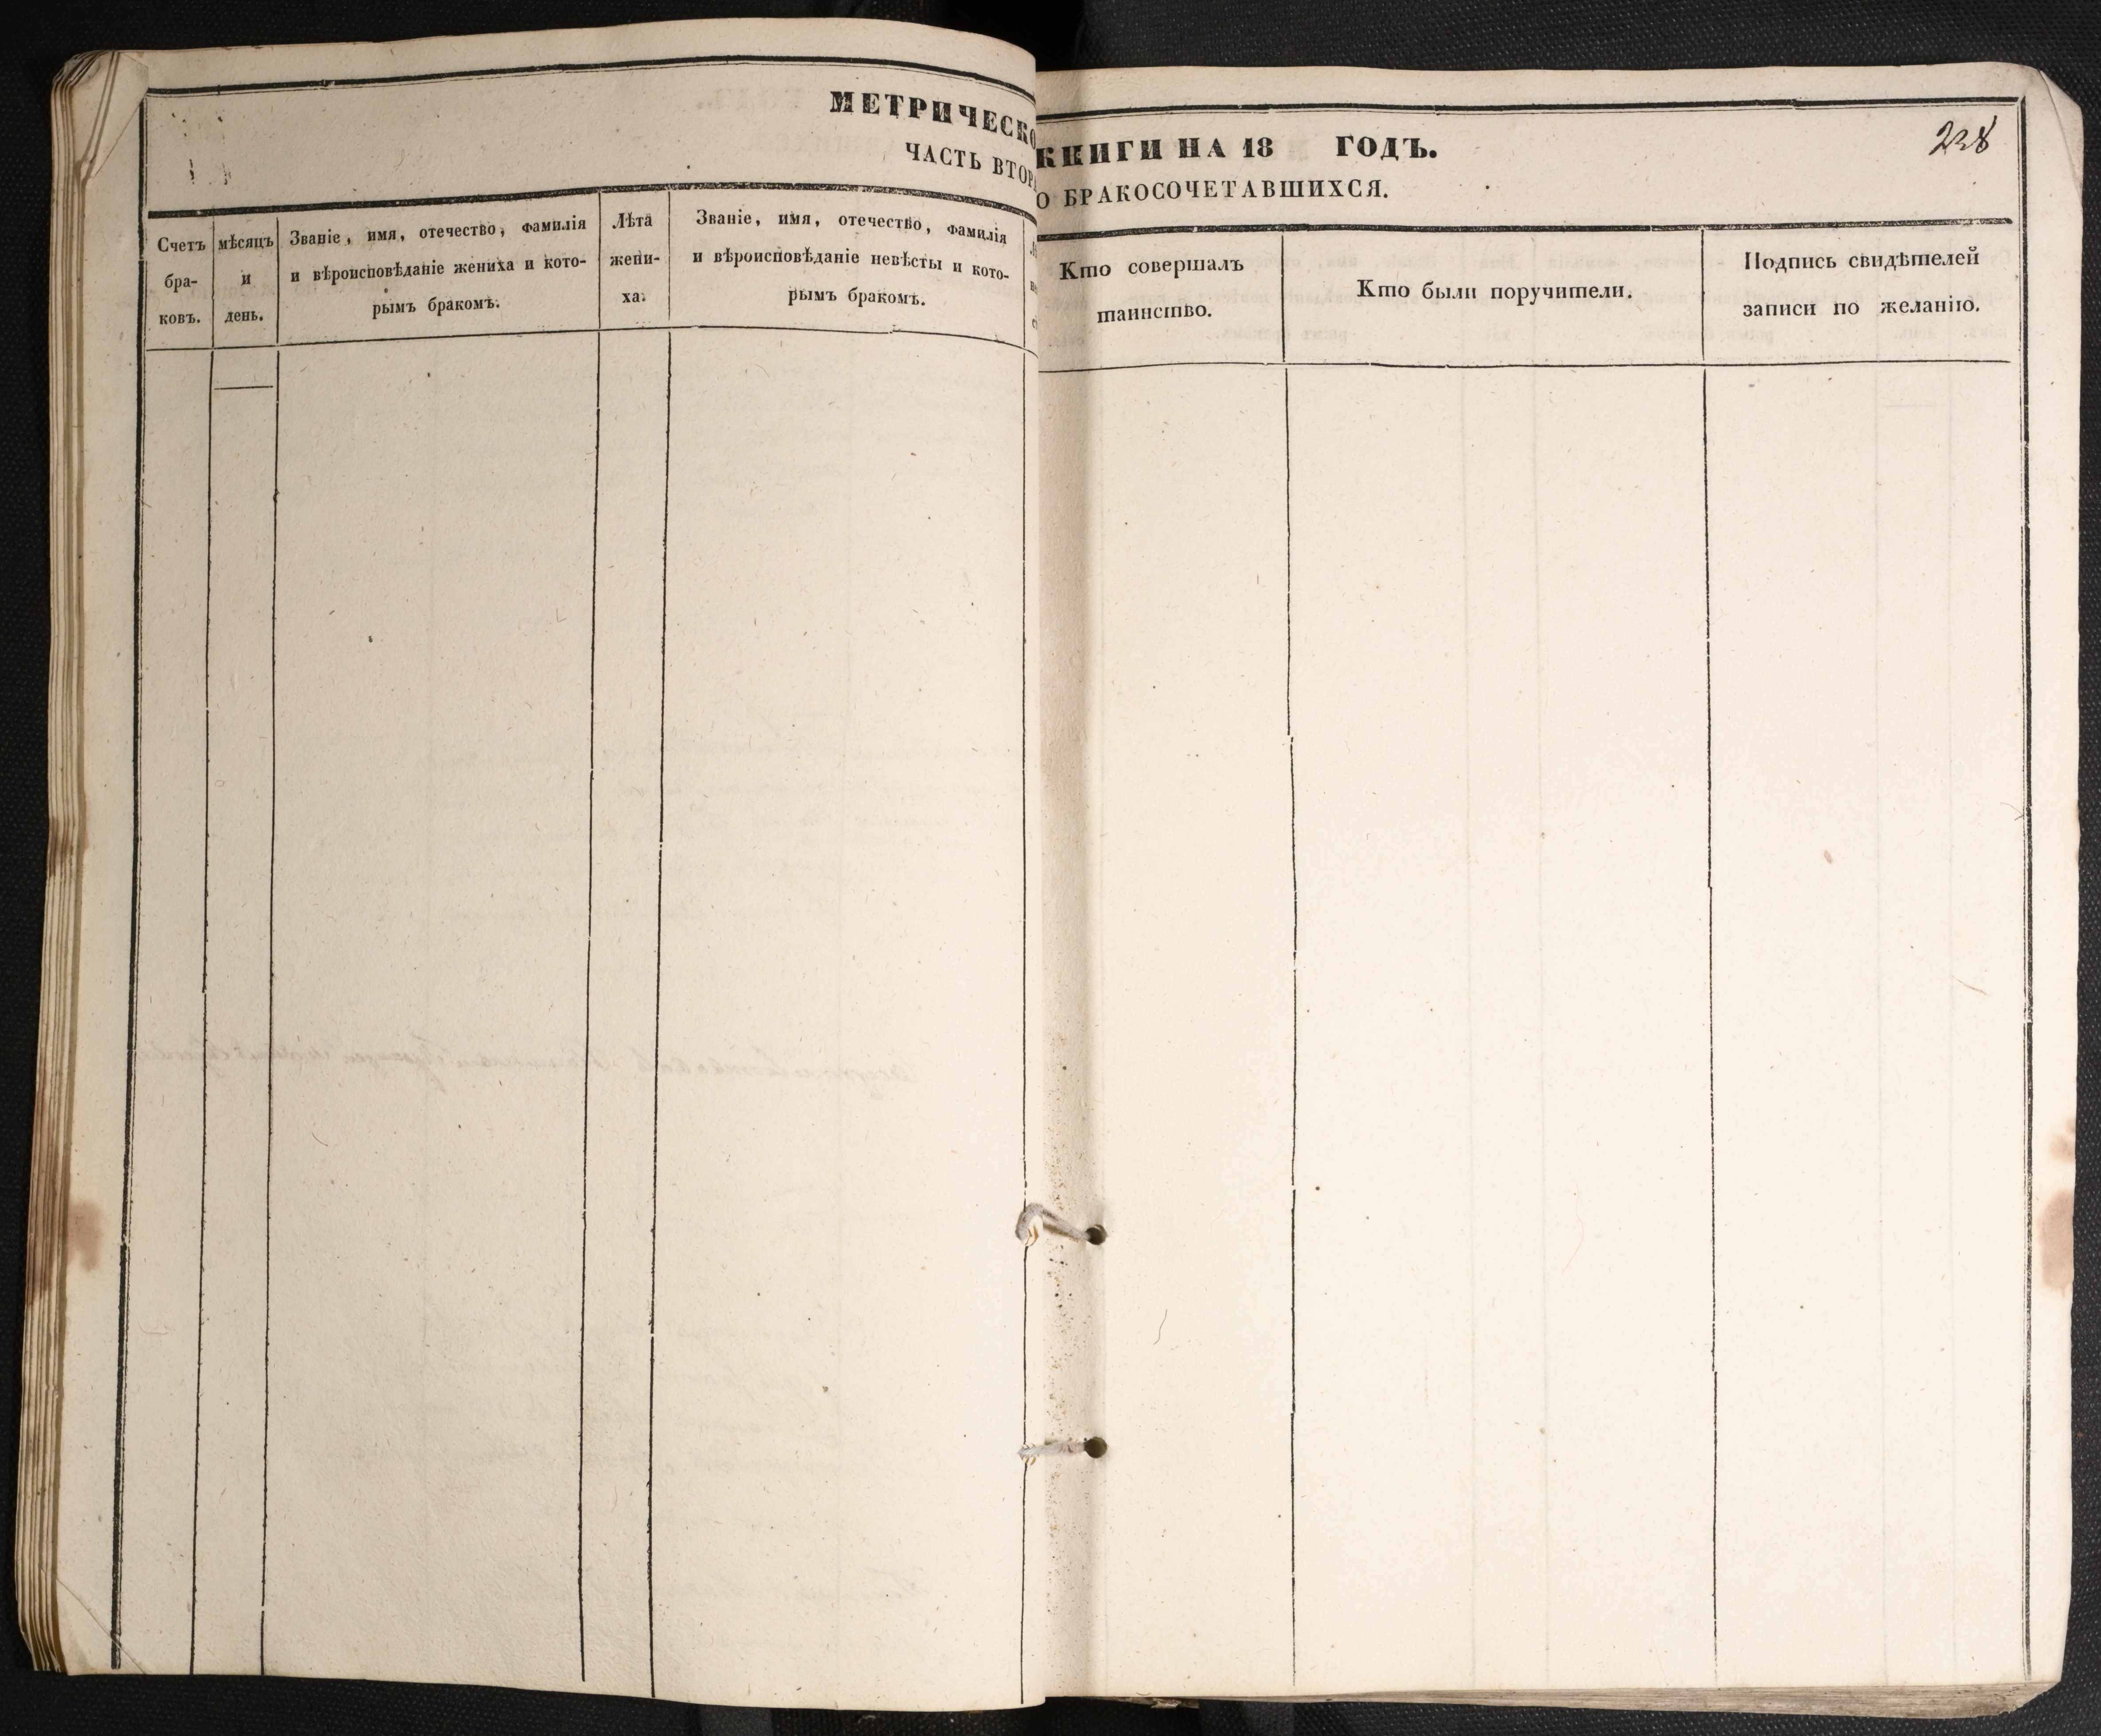 МЕТРИЧЕСКО
ЧАСТЬ ВТОР
Счетъ бра- ковъ.
мѣсяцъ и день.
Званіе, имя, отечество, фамилія
и вѣроисповѣданіе жениха и кото-
рымъ бракомъ.
Лѣта
жени-
ха.
Званіе, имя, отечество, фамилія
и вѣроисповѣданіе невѣсты и кото-
рымъ бракомъ.
КНИГИ НА 18 ГОДЪ.
О БРАКОСОЧЕТАВШИХСЯ.
238
Кто совершалъ
таинство.
Кто были поручители.
Подпись свидѣтелей
записи по желанію.